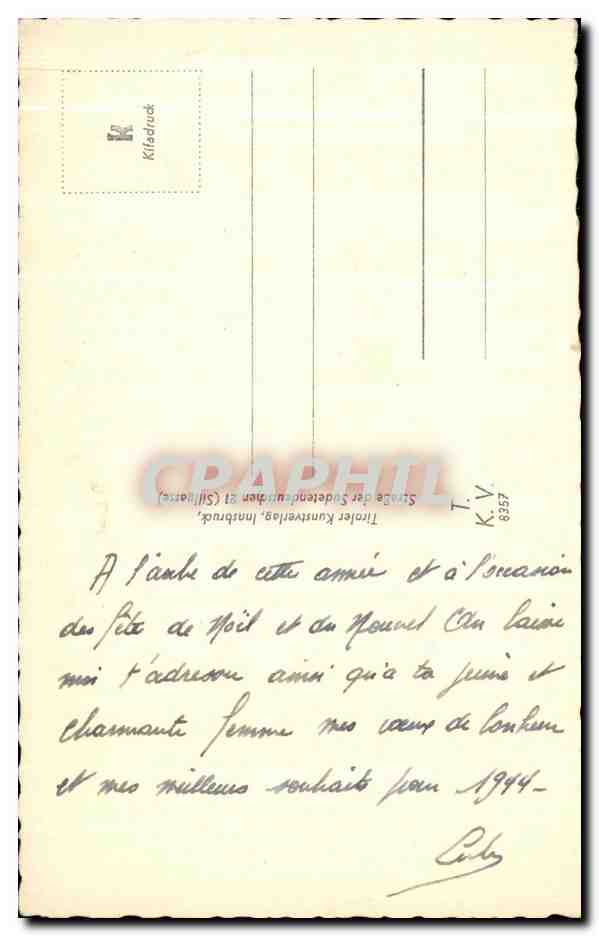 k
Kifadruck
CPARHIL
Tiroler Kunstverlag, Innsbruck,
Straße der Sudetendeutschen 21 (Sillgasse)
T.
K. V.
8357
A l'aube de cette année et à l'occasion
des fête de Noël et du Nouvel An laisse
moi t'adresser ainsi qu'a ta jeune et
charmante femme mes vœux de bonheur
et mes meilleurs souhaits pour 1944 -